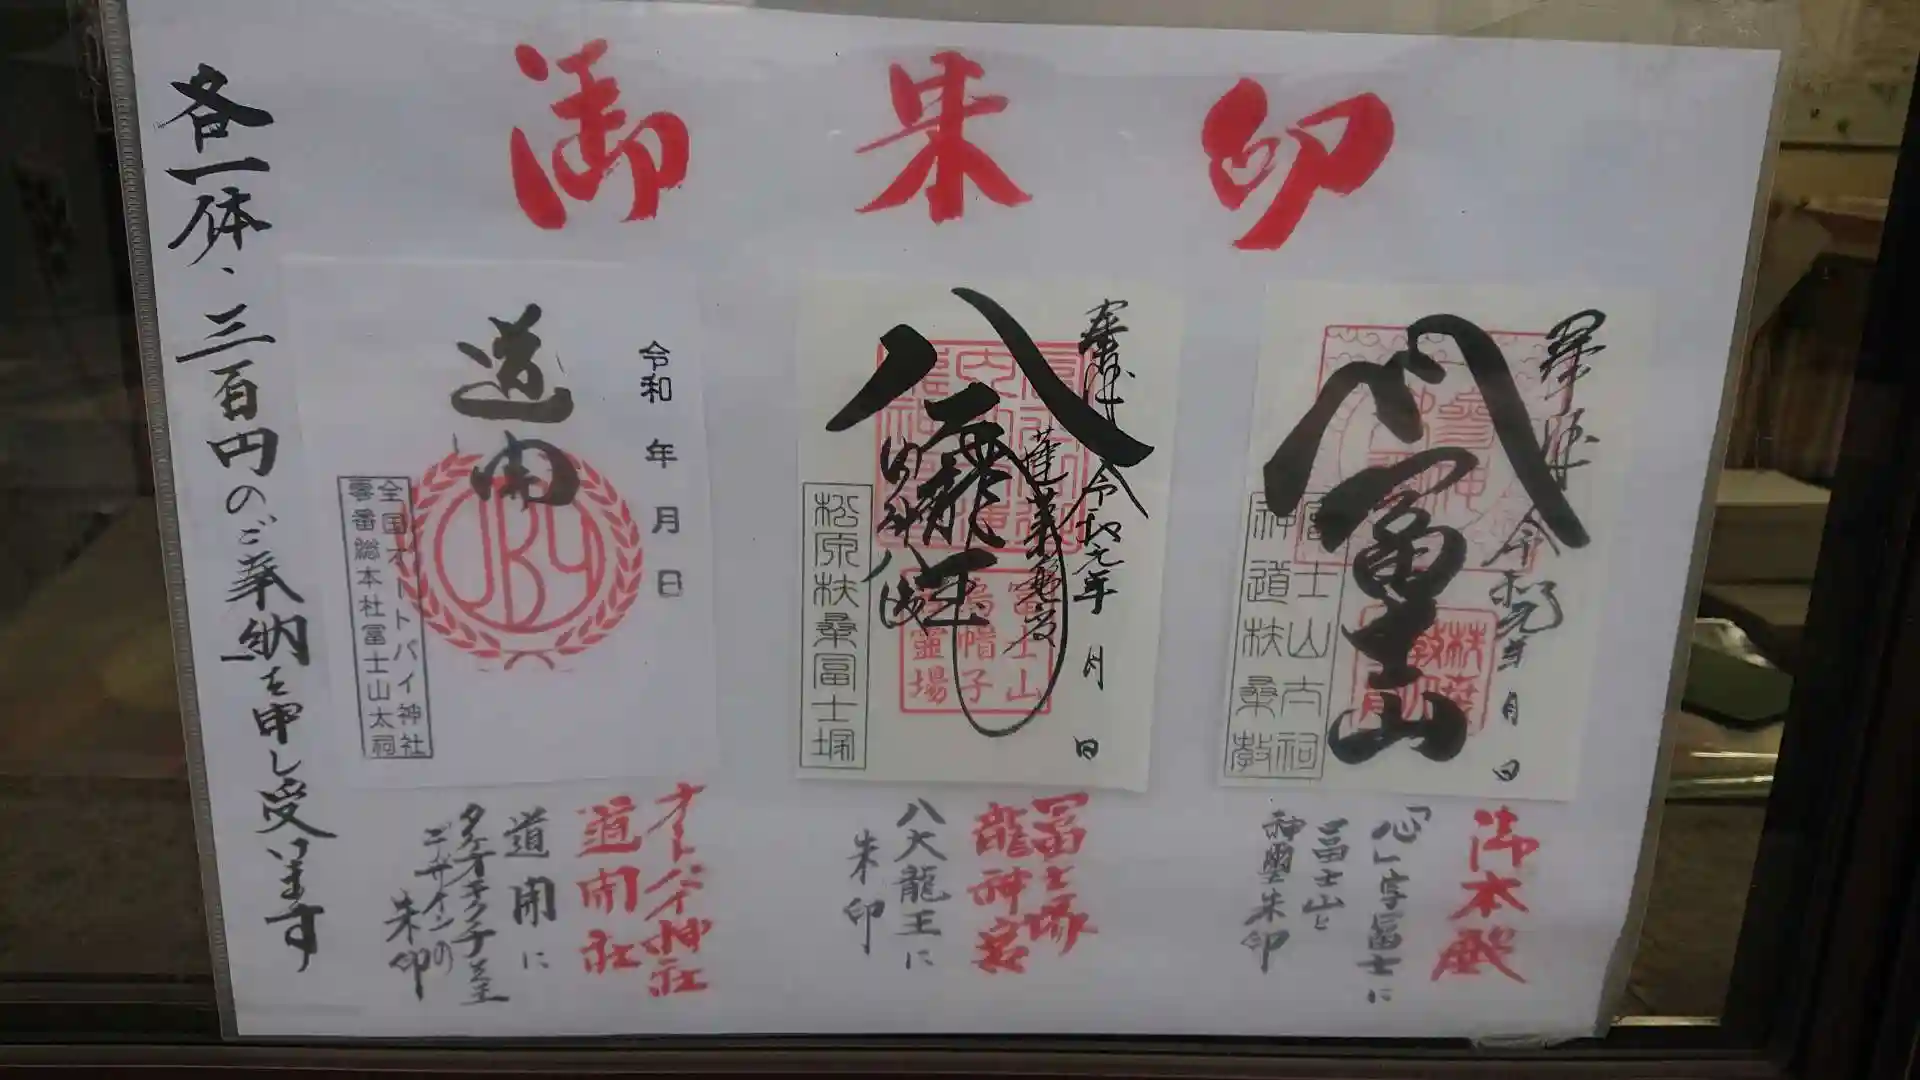 御朱印
奉拝
冨士山
令和元年 月 日
富士山太祠
神道扶桑教
御本殿
「心」字冨士に
冨士山と
神璽朱印
奉拝
八大龍王
令和元年 月 日
内外八海
松原扶桑冨士塚
冨士山
烏帽子
霊場
冨士塚
龍神宮
八大龍王に
朱印
令和 年 月 日
道開
全国オートバイ神社
零番総本社冨士山太祠
オートバイ神社
道開社
道開に
タケオキクチ氏
デザインの
朱印
各一体、三百円のご奉納を申し受けます